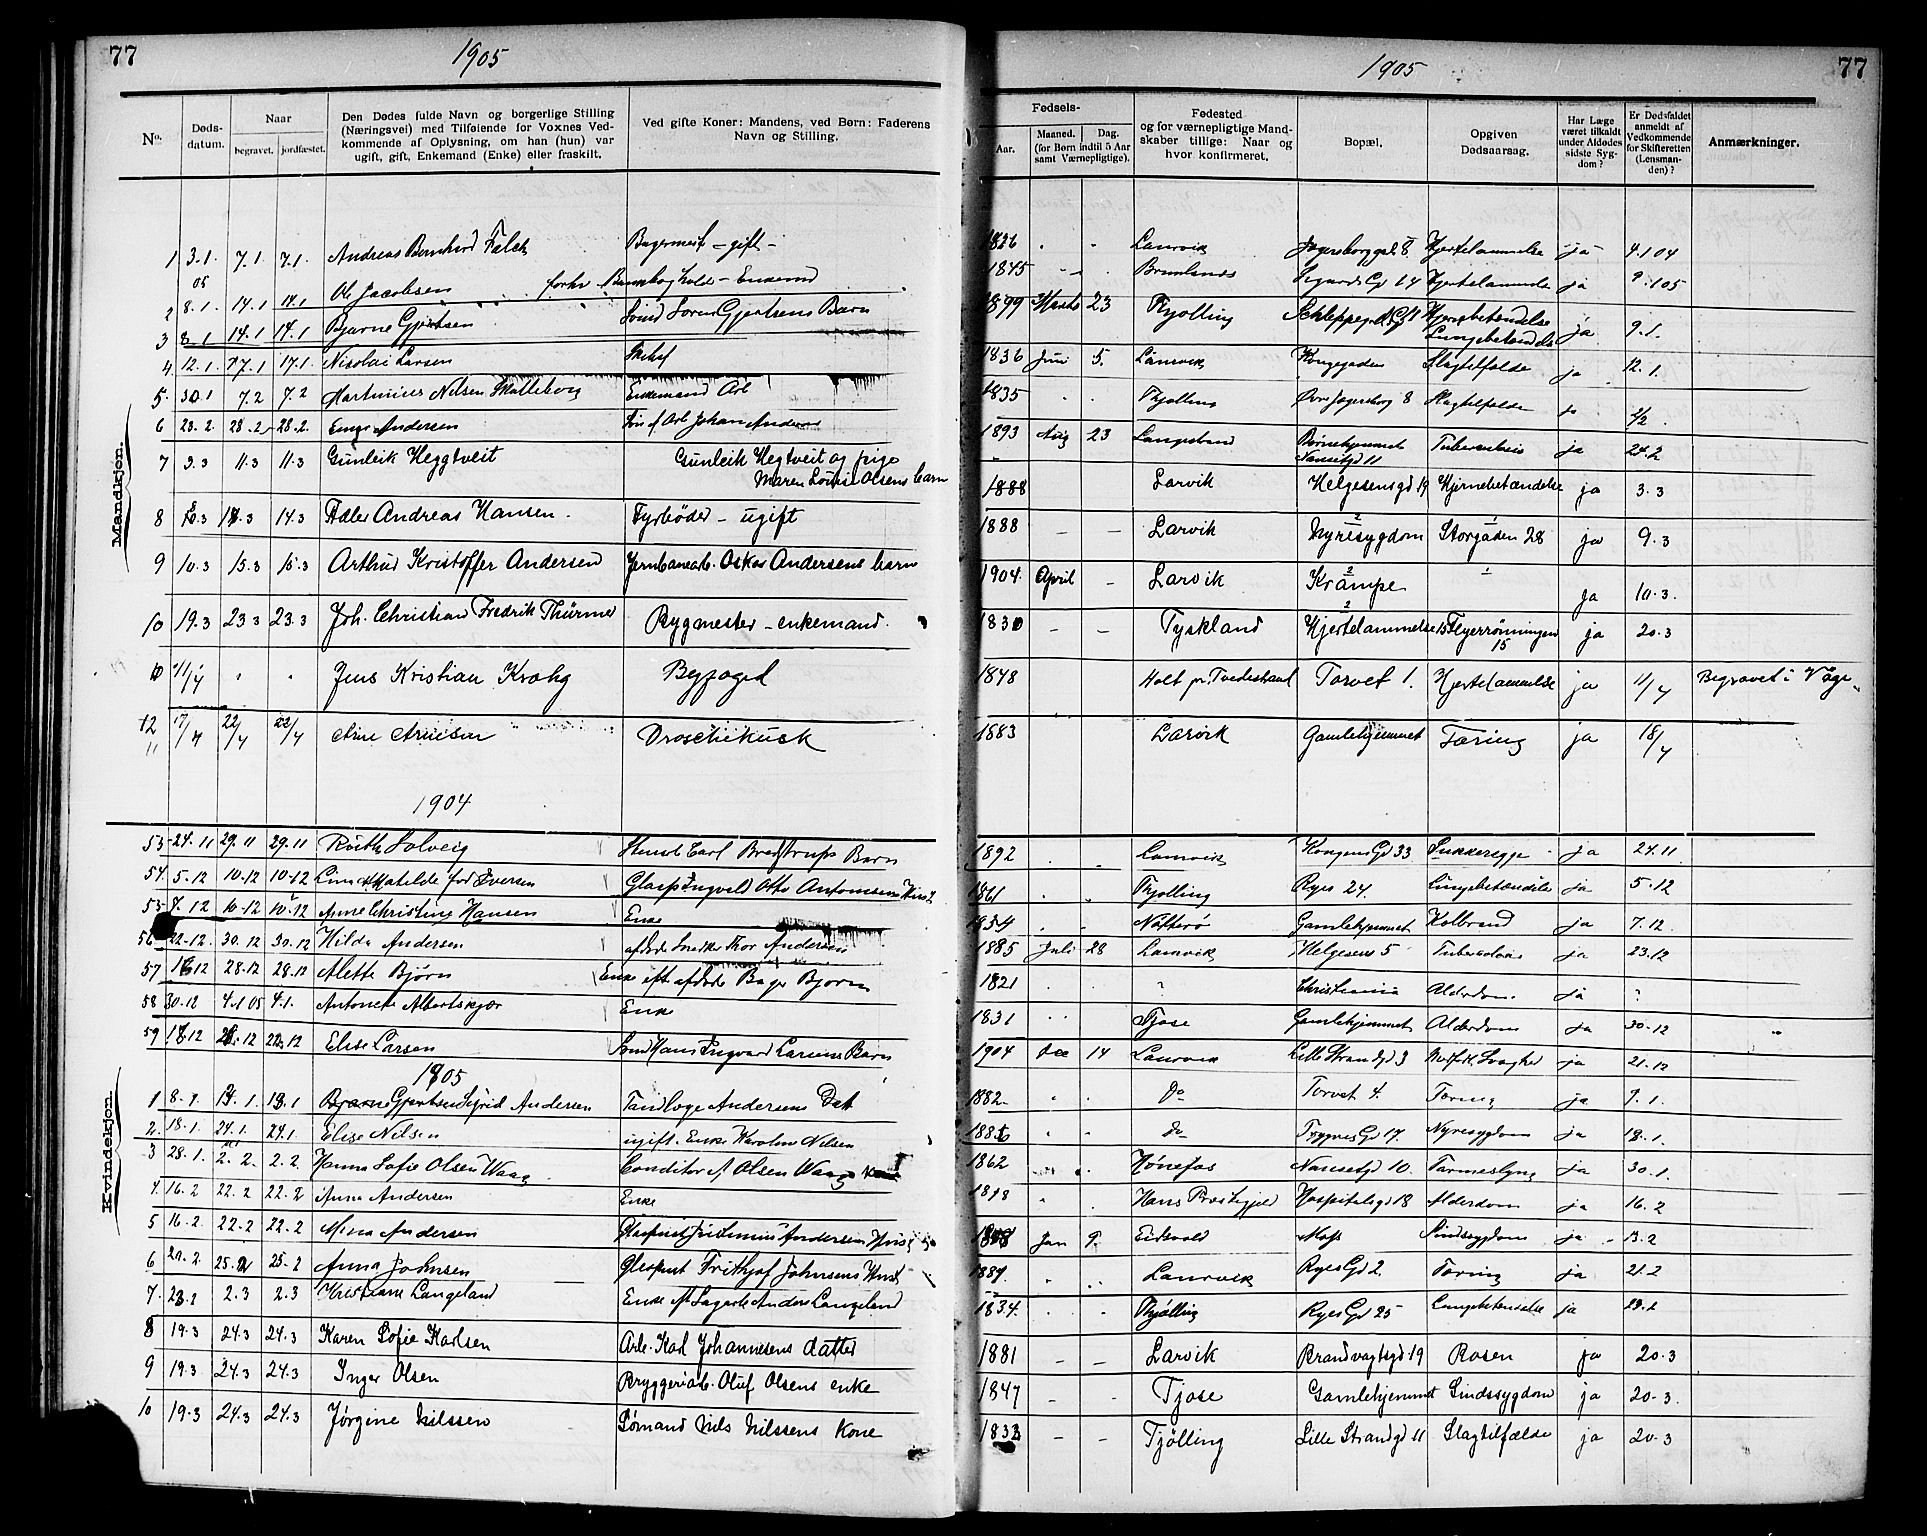 77
1905
No.
Døds-
datum.
Naar
begravet. jordfæstet.
Den Dødes fulde Navn og borgerlige Stilling
(Næringsvei) med Tilføiende for Voxnes Ved-
kommende af Oplysning, om han (hun) var
ugift, gift, Enkemand (Enke) eller fraskilt.
Ved gifte Koner: Mandens, ved Børn: Faderens
Navn og Stilling.
Mandkjøn.
1 3.1. 05 7.1. 7.1. Andreas Bernhard Falch Bagermest - gift -
2 8.1. 14.1 14.1 Ole Jacobsen Enkemd
3 8.1 14.1 14.1 Bjarne Gjertsen Gjertsens Barn
4 12.1 17.1 17.1. Nicolai Larsen
5. 30.1 7.2 7.2 Martinius Nilsen Enkemand Arb
6 23.2. 28.2. 28.2. Andersen Søn af Arb Johan Andersen
7 3.3 11.3 11.3 Gunleik Heggtveit Gunleik Hegtveit og pige
Maren Louise Olsens barn
8 10.3 14.3 14.3 Adler Andreas Hansen. Fyrbøder - ugift
9 10.3 15.3 15.3 Arthur Kristoffer Andersen Jernbanearb. Oskar Andersens barn
10 19.3 23.3 23.3 Joh. Christian Fredrik Thürmer Bygmester - enkemand.
10 11/4 " " Jens Kristian Krohg Byfoged
12 11 17/4 22/4 22/4 Arne Arnesen Droschekusk
1904
53 24.11 29.11 29.11 Ruth Solveig Carl Bredstrups Barn
54. 5.12 10.12 10.12 Matilde fød Iversen Glasp Ingvald Otto Antonsens Hust.
55 7.12 10.12 10.12 Anne Christine Hansen Enke
56 22.12. 30.12 30.12 Hilda Andersen afdøde Snedker Thor Andersen
57 16.12 28.12 28.12 Alette Bjørn Enke eft. afdøde Bager Bjørn
58 30.12 4.1.05 4.1. Antonette Albertskjær Enke
59 18.12 22.12 Elise Larsen Hans Ingvard Larsens Barn
Kvindekjøn.
1905
1 8.1. 13.1. 13.1 Bjarne Gjertsen Sigrid Andersen Tandlæge Andersens Dat
2. 18.1. 24.1. 24.1. Elise Nilsen ugift. Enke Karoline Nilsen
3 28.1. 2.2. 2.2. Hanna Sofie Olsen Waag Conditor A Olsen Waags Kone
4. 16.2 22.2 22.2 Anna Andersen Enke
5 16.2. 22.2 22.2 Mina Andersen Andersens Hust
6 20.2. 25.2 25.2 Anna Johnsen Glaspust Frithjof Johnsens Hust
7. 2.3 2.3 Kristiane Langeland Enke Anders Langeland
8 19.3 24.3 24.3 Karen Sofie Karlsen Arb. Karl Johannesens datter
9 19.3 24.3 24.3 Inger Olsen Bryggeriarb. Oluf Olsens enke
10 19.3 24.3 24.3 Jørgine Nilssen Sømand Nils Nilssens Kone
1905
77
Fødsels-
Aar.
Maaned. Dag.
(for Børn indtil 5 Aar
samt Værnepligtige).
Fødested
og for værnepligtige Mand-
skaber tillige: Naar og
hvor konfirmeret.
Bopæl.
Opgiven
Dødsaarsag.
Har Læge
været tilkaldt
under Afdødes
sidste Syg-
dom?
Er Dødsfaldet
anmeldt af
Vedkommende
for Skifteretten
(Lensman-
den)?
Anmærkninger.
1826 " " Laurvik Hjertelammelse ja 4.1 04
1845 " " Brunlanes Hjertelammelse ja 9.1 05
1899 Marts 23 Tjølling Hjernebetændelse
Lungebetændelse ja 9.1.
1836 Juni 5. Laurvik Kongegaden Slagtilfælde ja 12.1.
1835 " " Tjølling Øvre Jegersborg 8 Slagtilfælde ja 1/2
1893 Aug 23 Langesund Børnehjemmet
Nansetgd 11 Tuberculose ja 24.2
1888 Larvik Helgesensgd 19 Hjernebetændelse ja 3.3
1888 - - Larvik 2 Nyresygdom 1 Storgaden 28 ja 9.3
1904. April - Larvik 2 Krampe 1 ja 10.3.
1830 - - Tyskland 2 Hjertelammelse 15 ja 20.3
1848 Holt pr. Tvedestrand Torvet 1. Hjertelammelse ja 11/4 Begravet i Våge
1883 Larvik Gamlehjemmet Tæring ja 18/4
1892 " " Laurvik Kongens Gd 33 Sukkersyge ja 24.11
1861 " " Tjølling Ryes 24. Lungebetændelse ja 5.12
1834 Nøtterø Gamlehjemmet Koldbrand ja 7.12.
1885 Juli 28 Laurvik Helgesens 5 Tuberculose ja 23.12
1821 " " ? Christiania Alderdom ja ?
1831 " " Tjøse Gamlehjemmet Alderdom ja 30.12 "
1904 Dec 14 Laurvik Lille Strandgd 3 Svaghed ja 21.12
1882 " " Do Torvet 4. Tæring ja 9.1.
1886 " " Do Trygves Gd 17. Nyresygdom ja 18.1.
1862 " " Hønefos Nansetgd 10. Tarmeslyng ja 30.1.
1818 " Hans Præstegjeld Hospitalsgd 18 Alderdom ja 16.2
1848 Jan 9. Eidsvold Moss Sindssygdom ja 13.2
1887. " " Laurvik Ryes Gd 2. Tæring ja 21.2
1834. " " Tjølling Ryes Gd 25 Lungebetændelse ja
1881 - - Larvik Brandvagtsgd 19 Rosen ja 20.3
1847 - - Tjose Gamlehjemmet Sindssygdom ja 20.3.
1833 - - Tjølling Lille Strandgd 11 Slagtilfælde ja 20.3